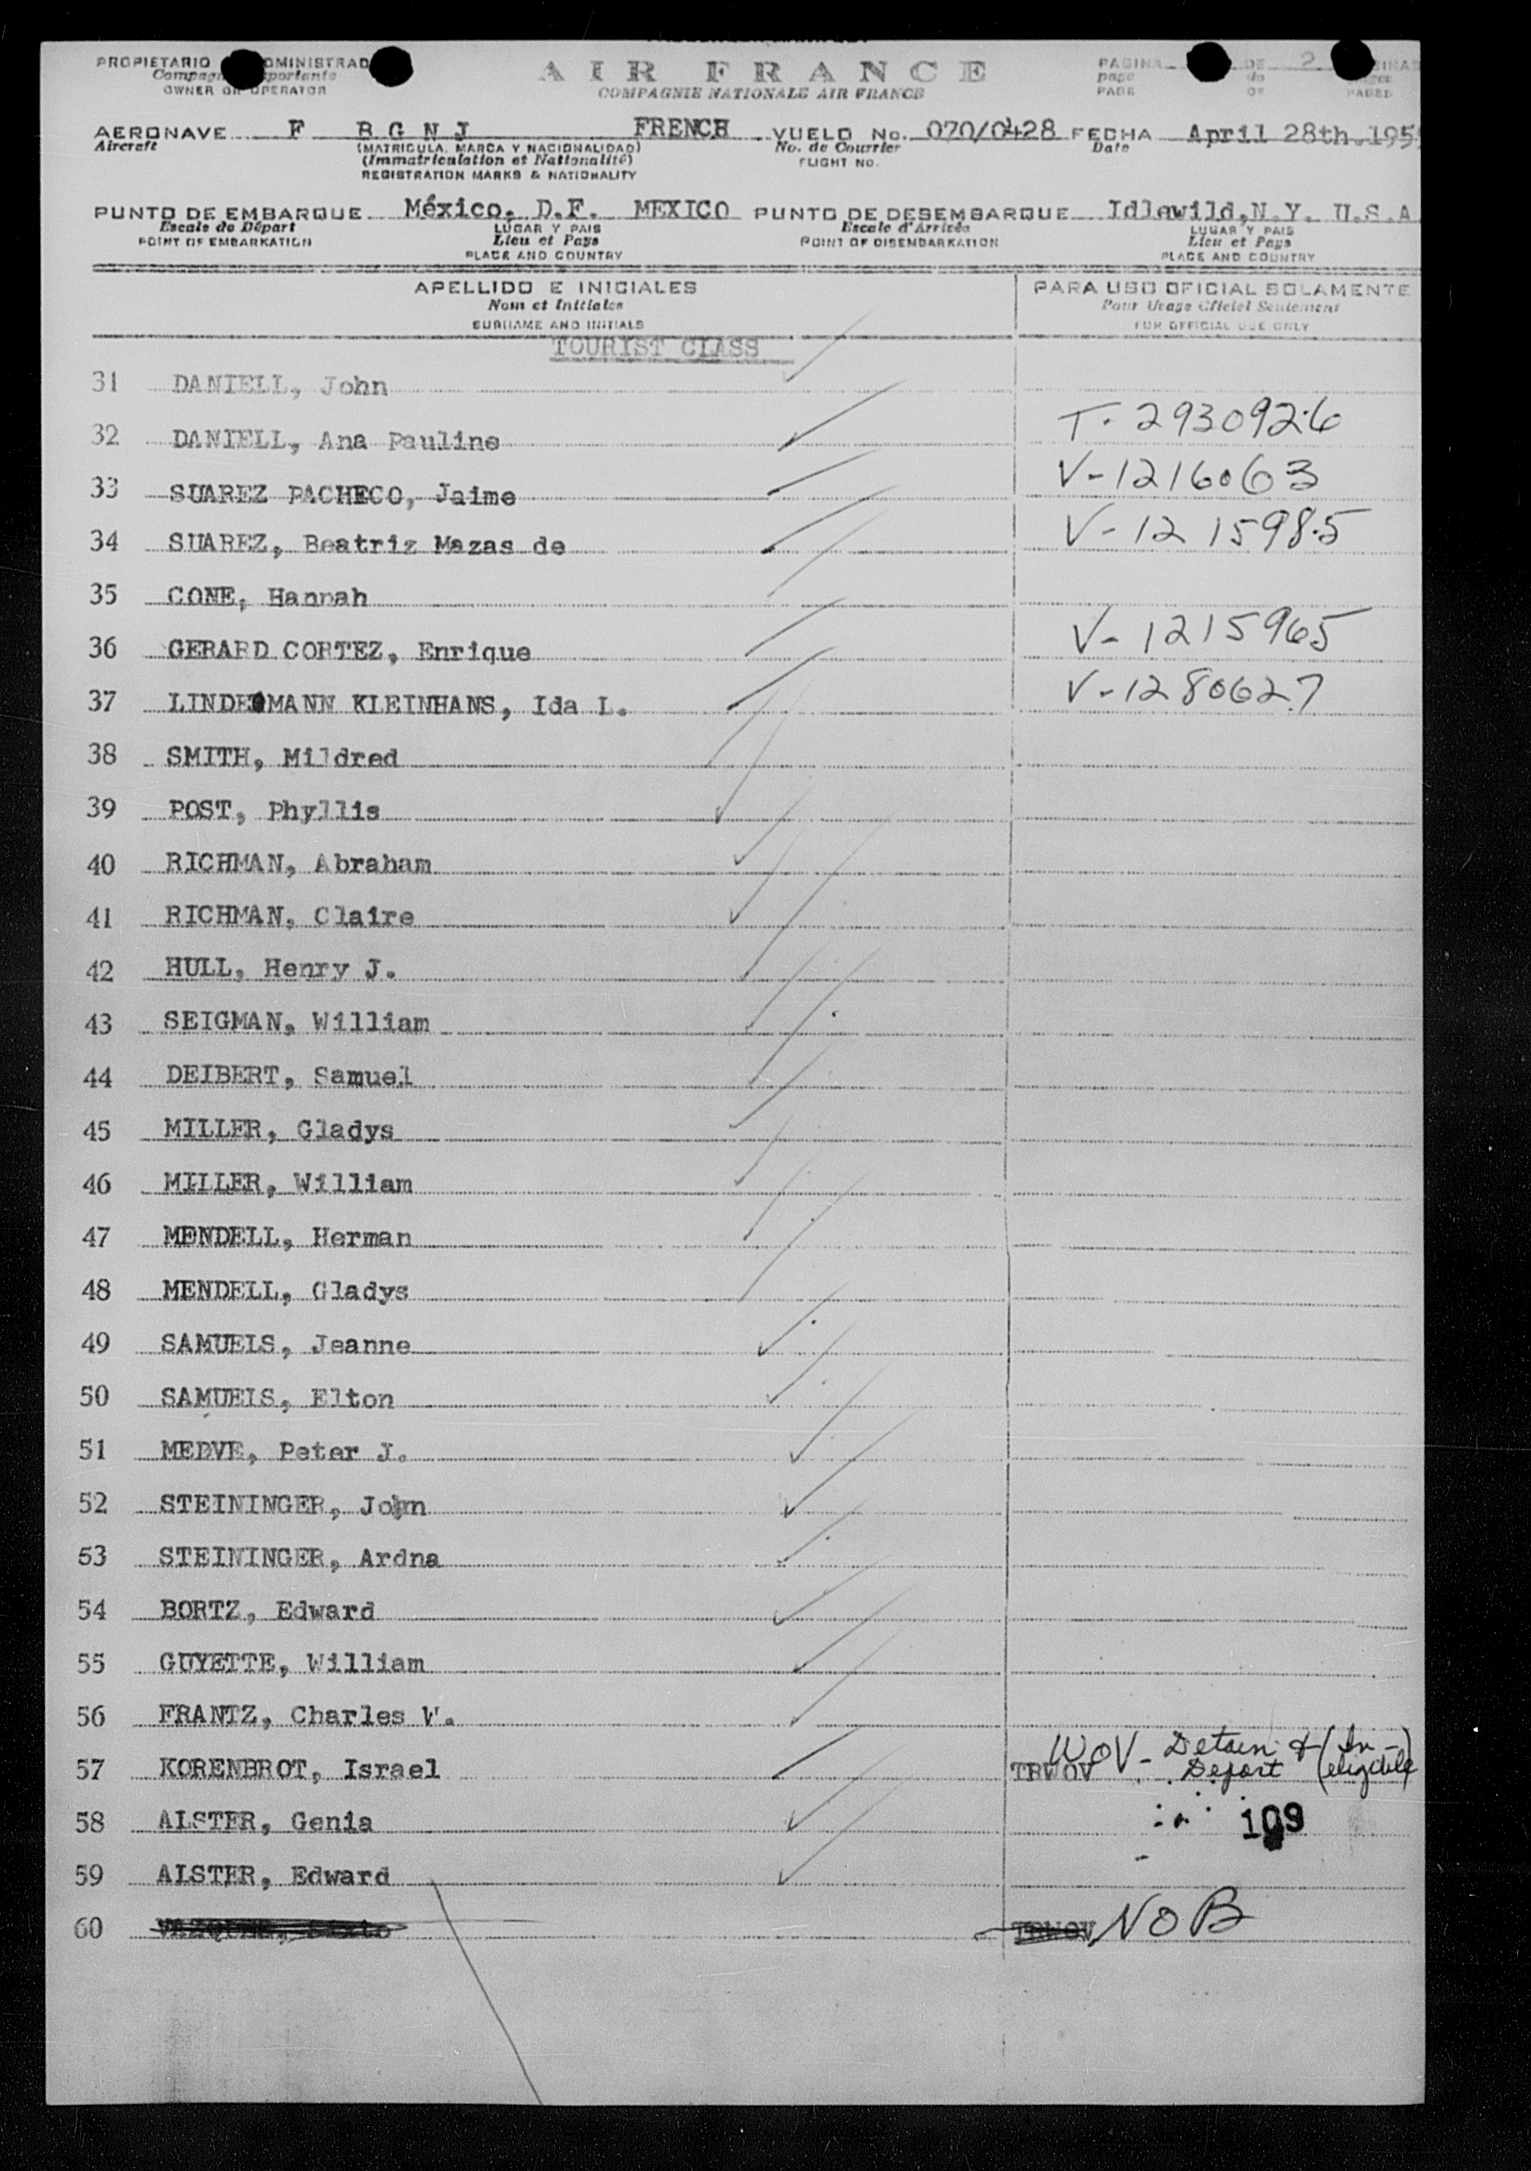 PROPIETARIO
OWNER OR OPERATOR
AIR FRANCE
COMPAGNIE NATIONALE AIR FRANCE
PAGINA DE 2
page de
PAGE OF PAGES
AERONAVE F BGNJ FRENCH VUELO No. 070/0428 FECHA April 28th.195
Aircraft (MATRICULA, MARCA Y NACIONALIDAD) No. de Courrier Date
(Immatriculation et Nationalité) FLIGHT NO.
REGISTRATION MARKS & NATIONALITY
PUNTO DE EMBARQUE México, D.F. MEXICO PUNTO DE DESEMBARQUE Idlewild,N.Y. U.S.A
Escale de Départ LUGAR Y PAIS Escale d'Arrivée LUGAR Y PAIS
POINT OF EMBARKATION Lieu et Pays POINT OF DISEMBARKATION Lieu et Pays
PLACE AND COUNTRY PLACE AND COUNTRY
APELLIDO E INICIALES PARA USO OFICIAL SOLAMENTE
Nom et Initiales Pour Usage Officiel Seulement
SURNAME AND INITIALS FOR OFFICIAL USE ONLY
TOURIST CLASS
31 DANIELL, John
32 DANIELL, Ana Pauline T-2930926
33 SUAREZ PACHECO, Jaime V-1216063
34 SUAREZ, Beatriz Mazas de V-1215985
35 CONE, Hannah
36 GERARD CORTEZ, Enrique V-1215965
37 LINDEMANN KLEINHANS, Ida L. V-1280627
38 SMITH, Mildred
39 POST, Phyllis
40 RICHMAN, Abraham
41 RICHMAN, Claire
42 HULL, Henry J.
43 SEIGMAN, William
44 DEIBERT, Samuel
45 MILLER, Gladys
46 MILLER, William
47 MENDELL, Herman
48 MENDELL, Gladys
49 SAMUELS, Jeanne
50 SAMUELS, Elton
51 MEDVE, Peter J.
52 STEININGER, John
53 STEININGER, Ardna
54 BORTZ, Edward
55 GUYETTE, William
56 FRANTZ, Charles W.
57 KORENBROT, Israel TRWOV WOV - Detain & Deport (In-eligible)
58 ALSTER, Genia 109
59 ALSTER, Edward
60 TRWOV NOB